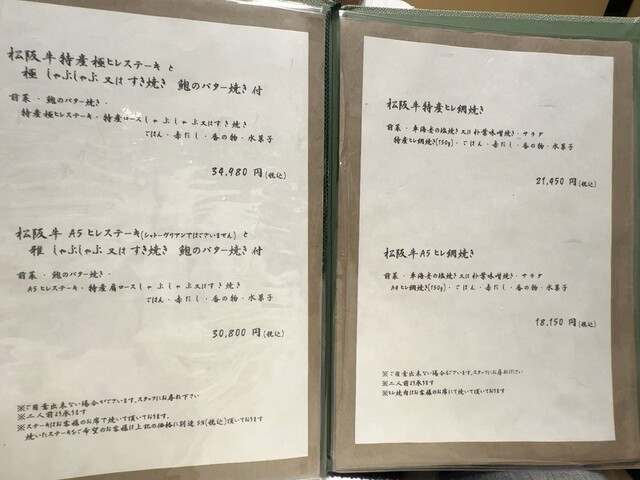 松阪牛特産極ヒレステーキ と
極 しゃぶしゃぶ 又は すき焼き 鮑のバター焼き 付
前菜・鮑のバター焼き・
特産極ヒレステーキ・特産ロースしゃぶしゃぶ又はすき焼き
ごはん・赤だし・香の物・水菓子
34,980 円(税込)
松阪牛 A5 ヒレステーキ(シャトーブリアンではございません) と
雅 しゃぶしゃぶ 又は すき焼き 鮑のバター焼き 付
前菜・鮑のバター焼き・
A5ヒレステーキ・特産肩ロースしゃぶしゃぶ又はすき焼き
ごはん・赤だし・香の物・水菓子
30,800 円(税込)
※ご用意出来ない場合がございます。スタッフにお尋ね下さい
※二人前より承ります
※ステーキはお客様のお席で焼いて頂いております。
焼いたステーキをご希望のお客様は上記の価格に別途5%(税込)頂いております
松阪牛特産ヒレ網焼き
前菜・車海老の塩焼き又は朴葉味噌焼き・サラダ
特産ヒレ網焼き(150g)・ごはん・赤だし・香の物・水菓子
21,450 円(税込)
松阪牛A5ヒレ網焼き
前菜・車海老の塩焼き又は朴葉味噌焼き・サラダ
A5ヒレ網焼き(150g)・ごはん・赤だし・香の物・水菓子
18,150 円(税込)
※ご用意出来ない場合がございます。スタッフにお尋ね下さい
※二人前より承ります
※ヒレ焼肉はお客様のお席にて焼いて頂いております